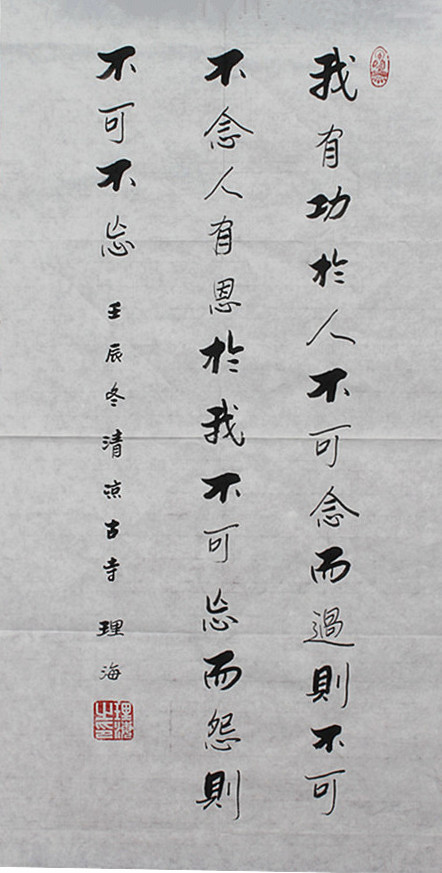 我有功於人不可念而過則不可
不念人有恩於我不可忘而怨則
不可不忘 壬辰冬清凉古寺 理海